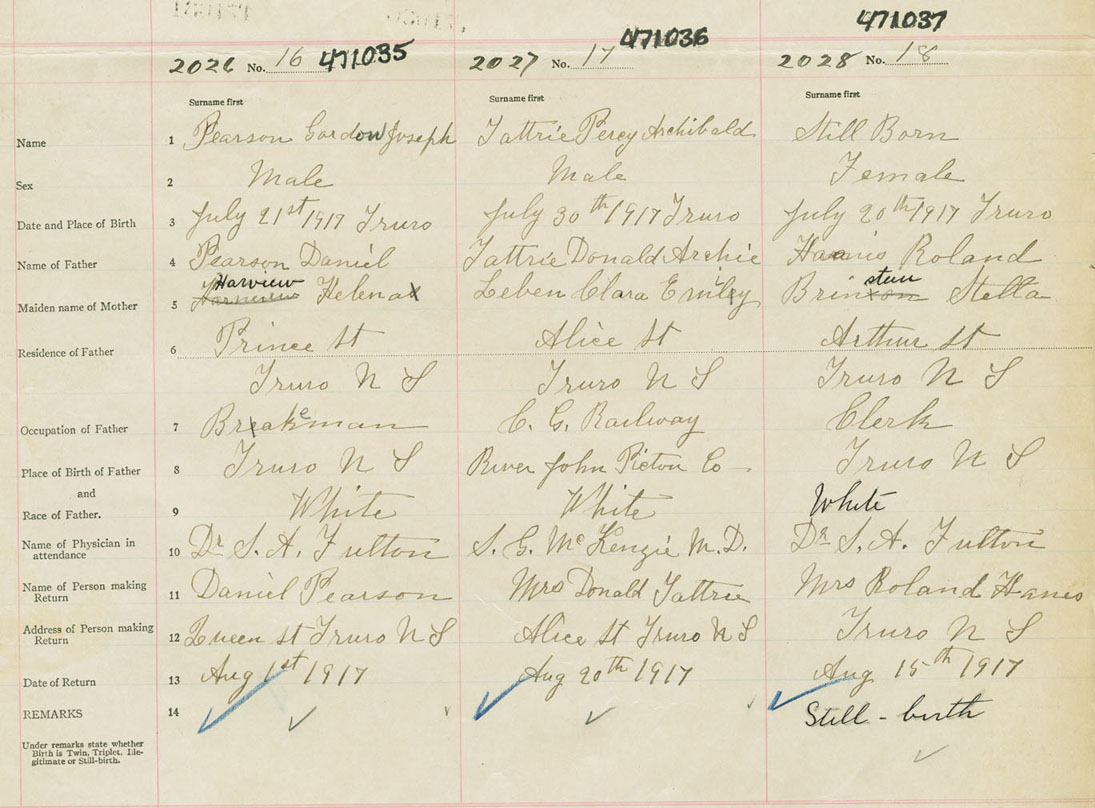 471035 471036 471037
2026 No. 16 2027 No. 17 2028 No. 18
Surname first Surname first Surname first
Name 1 Pearson Gordon Joseph Tattrie Percy Archibald Still Born
Sex 2 Male Male Female
Date and Place of Birth 3 July 21st 1917 Truro July 30th 1917 Truro July 20th 1917 Truro
Name of Father 4 Pearson Daniel Tattrie Donald Archie Roland
Harview stein
Maiden name of Mother 5 Helena Leben Clara Emily Brin Stella
Residence of Father 6 Prince St Alice St Arthur St
Truro N S Truro N S Truro N S
Occupation of Father 7 Brakeman C. G. Railway Clerk
Place of Birth of Father 8 Truro N S River John Pictou Co Truro N S
and
Race of Father. 9 White White White
Name of Physician in
attendance 10 Dr S. A. Fulton S. G. McKenzie M.D. Dr. S. A. Fulton
Name of Person making
Return 11 Daniel Pearson Mrs Donald Tattrie Mrs Roland Hanis
Address of Person making
Return 12 Queen St Truro N S Alice St Truro N S Truro N S
Date of Return 13 Aug 1st 1917 Aug 20th 1917 Aug 15th 1917
REMARKS 14 Still-birth
Under remarks state whether
Birth is Twin, Triplet, Ille-
gitimate or Still-birth.